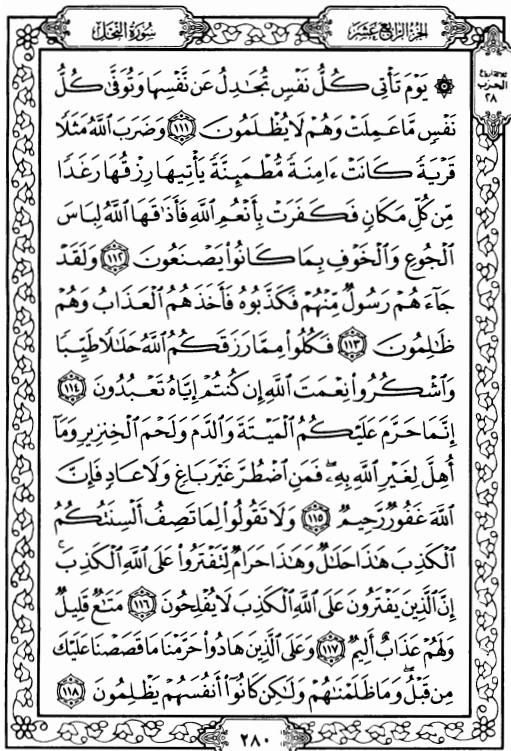 الجزء الرابع عشر
سورة النحل
ثلاثة أرباع
الحزب
٢٨
۞ يَوْمَ تَأْتِى كُلُّ نَفْسٍ تُجَٰدِلُ عَن نَّفْسِهَا وَتُوَفَّىٰ كُلُّ
نَفْسٍ مَّا عَمِلَتْ وَهُمْ لَا يُظْلَمُونَ ١١١ وَضَرَبَ ٱللَّهُ مَثَلًا
قَرْيَةً كَانَتْ ءَامِنَةً مُّطْمَئِنَّةً يَأْتِيهَا رِزْقُهَا رَغَدًا
مِّن كُلِّ مَكَانٍ فَكَفَرَتْ بِأَنْعُمِ ٱللَّهِ فَأَذَٰقَهَا ٱللَّهُ لِبَاسَ
ٱلْجُوعِ وَٱلْخَوْفِ بِمَا كَانُوا۟ يَصْنَعُونَ ١١٢ وَلَقَدْ
جَآءَهُمْ رَسُولٌ مِّنْهُمْ فَكَذَّبُوهُ فَأَخَذَهُمُ ٱلْعَذَابُ وَهُمْ
ظَٰلِمُونَ ١١٣ فَكُلُوا۟ مِمَّا رَزَقَكُمُ ٱللَّهُ حَلَٰلًا طَيِّبًا
وَٱشْكُرُوا۟ نِعْمَتَ ٱللَّهِ إِن كُنتُمْ إِيَّاهُ تَعْبُدُونَ ١١٤
إِنَّمَا حَرَّمَ عَلَيْكُمُ ٱلْمَيْتَةَ وَٱلدَّمَ وَلَحْمَ ٱلْخِنزِيرِ وَمَآ
أُهِلَّ لِغَيْرِ ٱللَّهِ بِهِۦۖ فَمَنِ ٱضْطُرَّ غَيْرَ بَاغٍ وَلَا عَادٍ فَإِنَّ
ٱللَّهَ غَفُورٌ رَّحِيمٌ ١١٥ وَلَا تَقُولُوا۟ لِمَا تَصِفُ أَلْسِنَتُكُمُ
ٱلْكَذِبَ هَٰذَا حَلَٰلٌ وَهَٰذَا حَرَامٌ لِّتَفْتَرُوا۟ عَلَى ٱللَّهِ ٱلْكَذِبَۚ
إِنَّ ٱلَّذِينَ يَفْتَرُونَ عَلَى ٱللَّهِ ٱلْكَذِبَ لَا يُفْلِحُونَ ١١٦ مَتَٰعٌ قَلِيلٌ
وَلَهُمْ عَذَابٌ أَلِيمٌ ١١٧ وَعَلَى ٱلَّذِينَ هَادُوا۟ حَرَّمْنَا مَا قَصَصْنَا عَلَيْكَ
مِن قَبْلُۖ وَمَا ظَلَمْنَٰهُمْ وَلَٰكِن كَانُوٓا۟ أَنفُسَهُمْ يَظْلِمُونَ ١١٨
٢٨٠